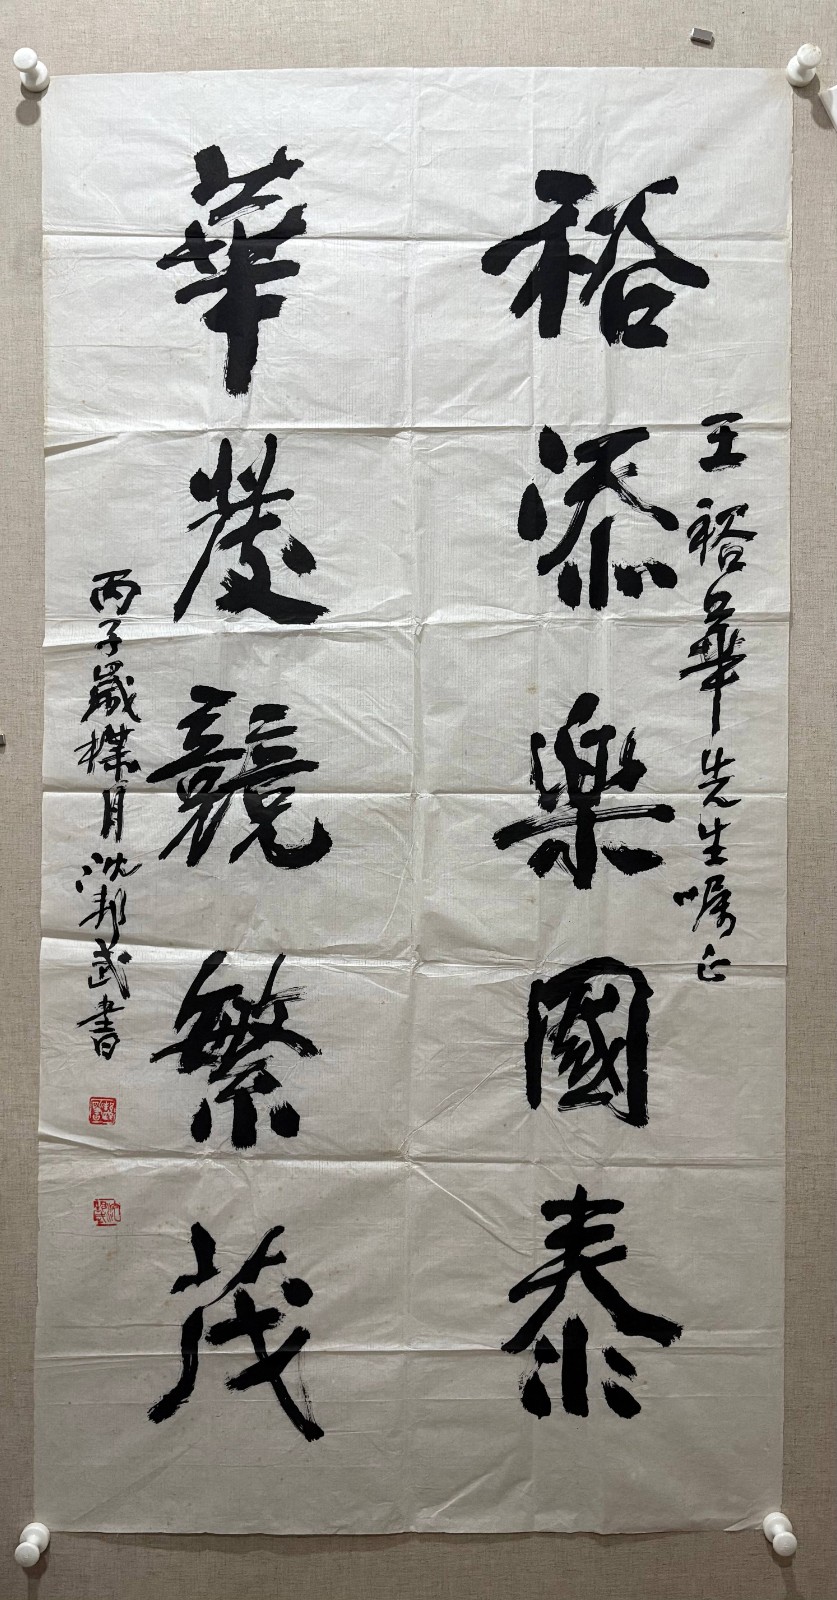 王裕華先生嘱正
裕添樂國泰
華發競繁茂
丙子歲樸月沈邦武書